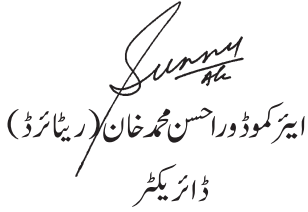 Sunny
ایئر کموڈور احسن محمد خان (ریٹائرڈ)
ڈائریکٹر